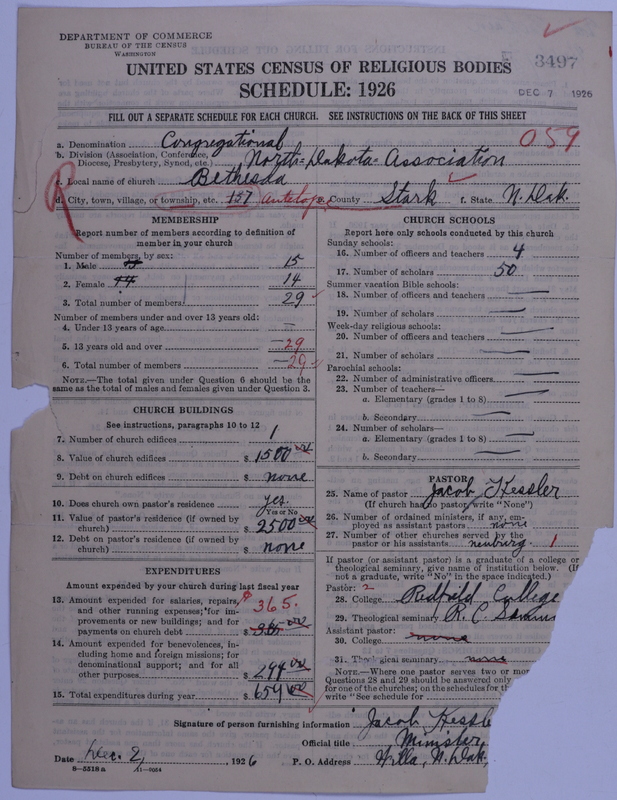 DEPARTMENT OF COMMERCE
BUREAU OF THE CENSUS
WASHINGTON
3497
UNITED STATES CENSUS OF RELIGIOUS BODIES
SCHEDULE: 1926
DEC 7 1926
FILL OUT A SEPARATE SCHEDULE FOR EACH CHURCH. SEE INSTRUCTIONS ON THE BACK OF THIS SHEET
059
a. Denomination Congregational
b. Division (Association, Conference, Diocese, Presbytery, Synod, etc.) North=Dakota=Association
c. Local name of church Bethesda
d. City, town, village, or township, etc. 137 Antelope e. County Stark f. State N. Dak.
MEMBERSHIP
Report number of members according to definition of
member in your church
Number of members, by sex:
1. Male 15
2. Female 14
3. Total number of members 29
Number of members under and over 13 years old:
4. Under 13 years of age —
5. 13 years old and over 29
6. Total number of members 29
NOTE.—The total given under Question 6 should be the
same as the total of males and females given under Question 3.
CHURCH BUILDINGS
See instructions, paragraphs 10 to 12
7. Number of church edifices 1
8. Value of church edifices $ 1500 00
9. Debt on church edifices $ none
10. Does church own pastor's residence yes
Yes or No
11. Value of pastor's residence (if owned by
church) $ 2500 00
12. Debt on pastor's residence (if owned by
church) $ none
EXPENDITURES
Amount expended by your church during last fiscal year
13. Amount expended for salaries, repairs,
and other running expenses; for im-
provements or new buildings; and for
payments on church debt $ 365.
14. Amount expended for benevolences, in-
cluding home and foreign missions; for
denominational support; and for all
other purposes $ 294 00
15. Total expenditures during year $ 659 00
CHURCH SCHOOLS
Report here only schools conducted by this church
Sunday schools:
16. Number of officers and teachers 4
17. Number of scholars 50
Summer vacation Bible schools:
18. Number of officers and teachers —
19. Number of scholars —
Week-day religious schools:
20. Number of officers and teachers —
21. Number of scholars —
Parochial schools:
22. Number of administrative officers —
23. Number of teachers—
a. Elementary (grades 1 to 8) —
b. Secondary —
24. Number of scholars—
a. Elementary (grades 1 to 8) —
b. Secondary —
PASTOR
25. Name of pastor Jacob Kessler
(If church has no pastor, write "None")
26. Number of ordained ministers, if any, em-
ployed as assistant pastors none
27. Number of other churches served by the
pastor or his assistants neuburg. 1
If pastor (or assistant pastor) is a graduate of a college or
theological seminary, give name of institution below. (If
not a graduate, write "No" in the space indicated.)
Pastor: 2
28. College Redfield College
29. Theological seminary R. C.
Assistant pastor:
30. College none
31. Theological seminary none
NOTE.—Where one pastor serves two or mor
Questions 28 and 29 should be answered only
for one of the churches; on the schedules for th
write "See schedule for
Signature of person furnishing information Jacob Kessle
Official title Minister
Date Dec. 2, 1926 P. O. Address N. Dak.
8—5518 a